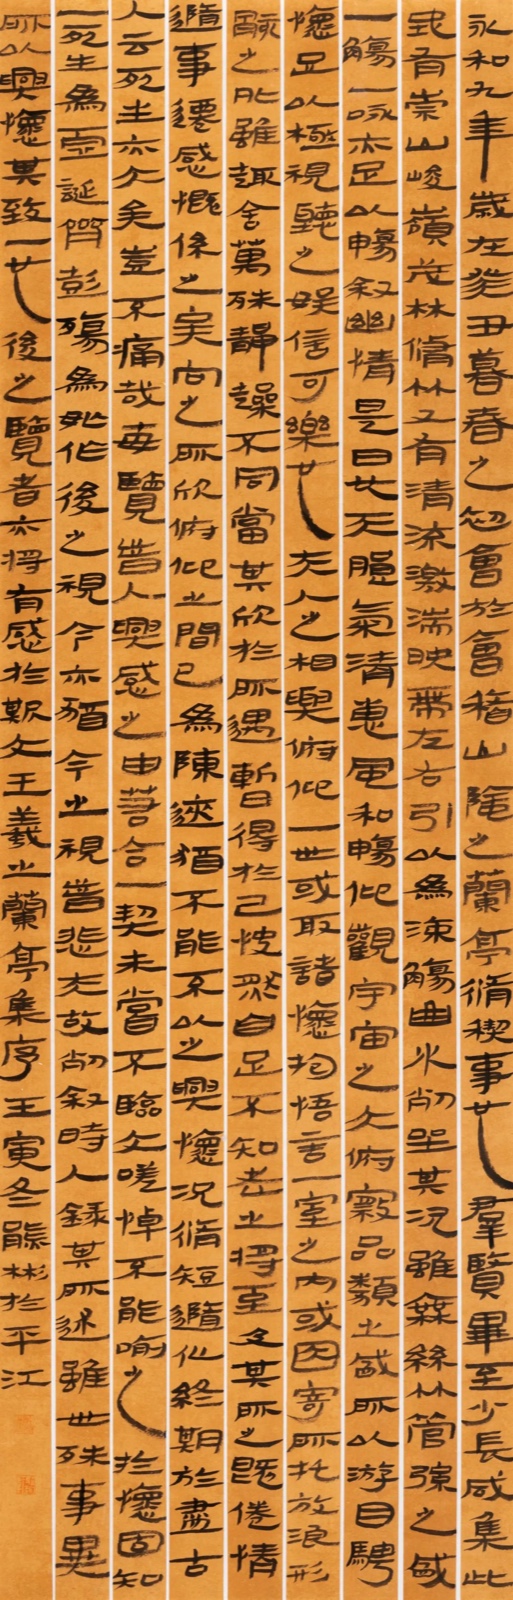 永和九年歲在癸丑暮春之初會於會稽山陰之蘭亭脩禊事也羣賢畢至少長咸集此
地有崇山峻嶺茂林脩竹又有清流激湍映帶左右引以為流觴曲水列坐其次雖無絲竹管弦之盛
一觴一詠亦足以暢敘幽情是日也天朗氣清惠風和暢仰觀宇宙之大俯察品類之盛所以游目騁
懷足以極視聽之娛信可樂也夫人之相與俯仰一世或取諸懷抱悟言一室之內或因寄所托放浪形
骸之外雖趣舍萬殊靜躁不同當其欣於所遇暫得於己快然自足不知老之將至及其所之既倦情
隨事遷感慨係之矣向之所欣俯仰之間已為陳迹猶不能不以之興懷況脩短隨化終期於盡古
人云死生亦大矣豈不痛哉每覽昔人興感之由若合一契未嘗不臨文嗟悼不能喻之於懷固知
一死生為虛誕齊彭殤為妄作後之視今亦猶今之視昔悲夫故列敘時人錄其所述雖世殊事異
所以興懷其致一也後之覽者亦將有感於斯文王羲之蘭亭集序壬寅冬熊彬於平江